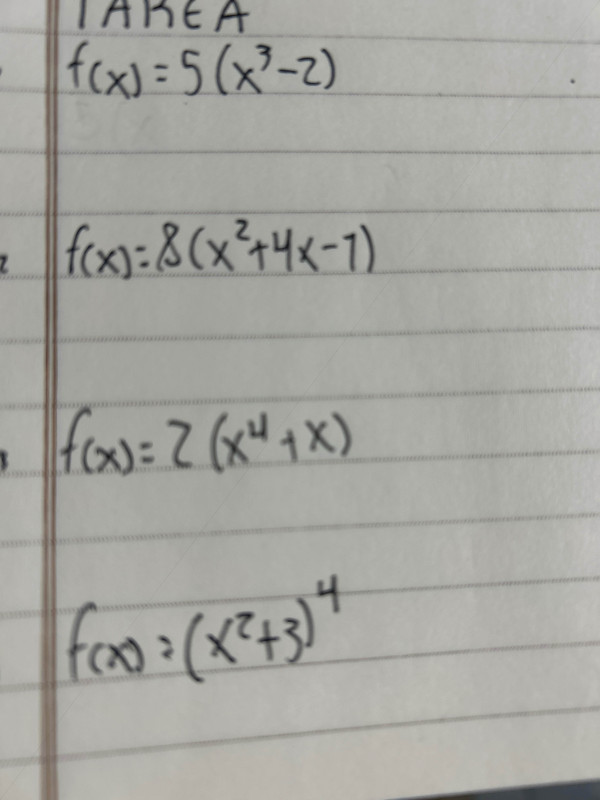 TAREA
f(x)=5(x³-2)
2 f(x)=8(x²+4x-1)
f(x)=2(x⁴+x)
f(x)=(x²+3)⁴